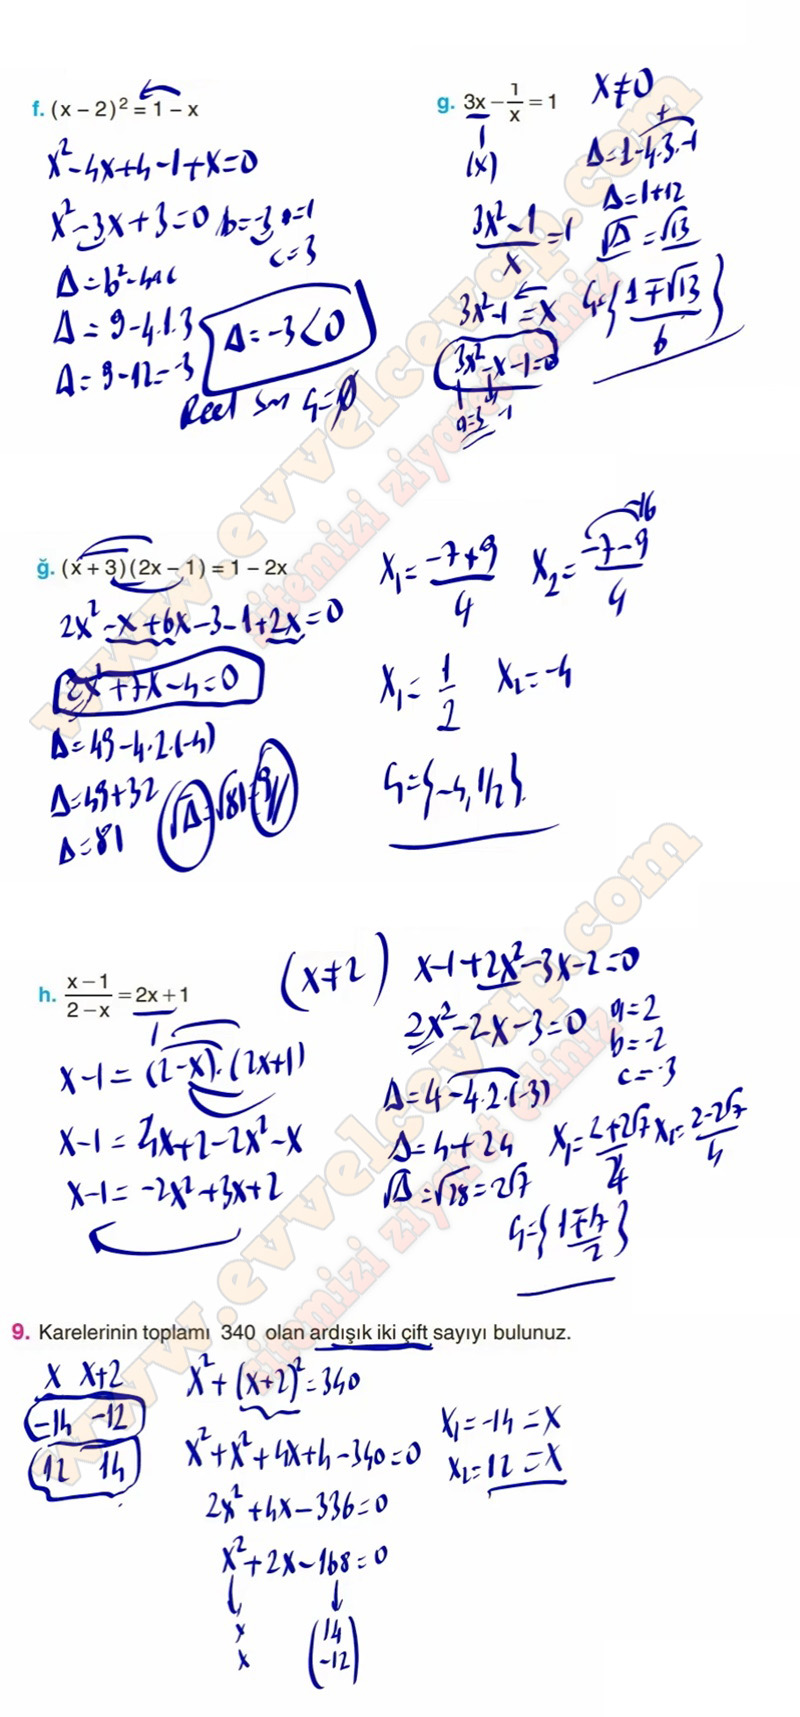 f. (x – 2)² = 1 – x
x² – 4x + 4 – 1 + x = 0
x² – 3x + 3 = 0 b = –3 a = 1
c = 3
Δ = b² – 4ac
Δ = 9 – 4.1.3
Δ = 9 – 12 = –3
Δ = –3 < 0
Reel Ç = ∅
g. 3x – 1/x = 1
x ≠ 0
(x)
(3x² – 1)/x = 1
3x² – 1 = x
3x² – x – 1 = 0
a = 3 –1
Δ = 1 – 4.3.–1
Δ = 1 + 12
√Δ = √13
Ç = {(1 ∓ √13)/6}
ğ. (x + 3)(2x – 1) = 1 – 2x
2x² – x + 6x – 3 – 1 + 2x = 0
2x² + 7x – 4 = 0
Δ = 49 – 4.2.(–4)
Δ = 49 + 32
Δ = 81
√Δ = √81 = 9
x₁ = (–7 + 9)/4 x₂ = (–7 – 9)/4
–16
x₁ = 1/2 x₂ = –4
Ç = {–4, 1/2}
h. (x – 1)/(2 – x) = 2x + 1
(x ≠ 2)
x – 1 = (2 – x).(2x + 1)
x – 1 = 4x + 2 – 2x² – x
x – 1 = –2x² + 3x + 2
x – 1 + 2x² – 3x – 2 = 0
2x² – 2x – 3 = 0
a = 2
b = –2
c = –3
Δ = 4 – 4.2.(–3)
Δ = 4 + 24
√Δ = √28 = 2√7
x₁ = (2 + 2√7)/4 x₁ = (2 – 2√7)/4
9. Karelerinin toplamı 340 olan ardışık iki çift sayıyı bulunuz.
x x+2
–14 –12
12 14
x² + (x + 2)² = 340
x² + x² + 4x + 4 – 340 = 0
2x² + 4x – 336 = 0
x² + 2x – 168 = 0
x 14
x –12
x₁ = –14 = x
x₂ = 12 = x
www.evvelcevap.com
sitemizi ziyaret ediniz
www.evvelcevap.com
sitemizi ziyaret ediniz